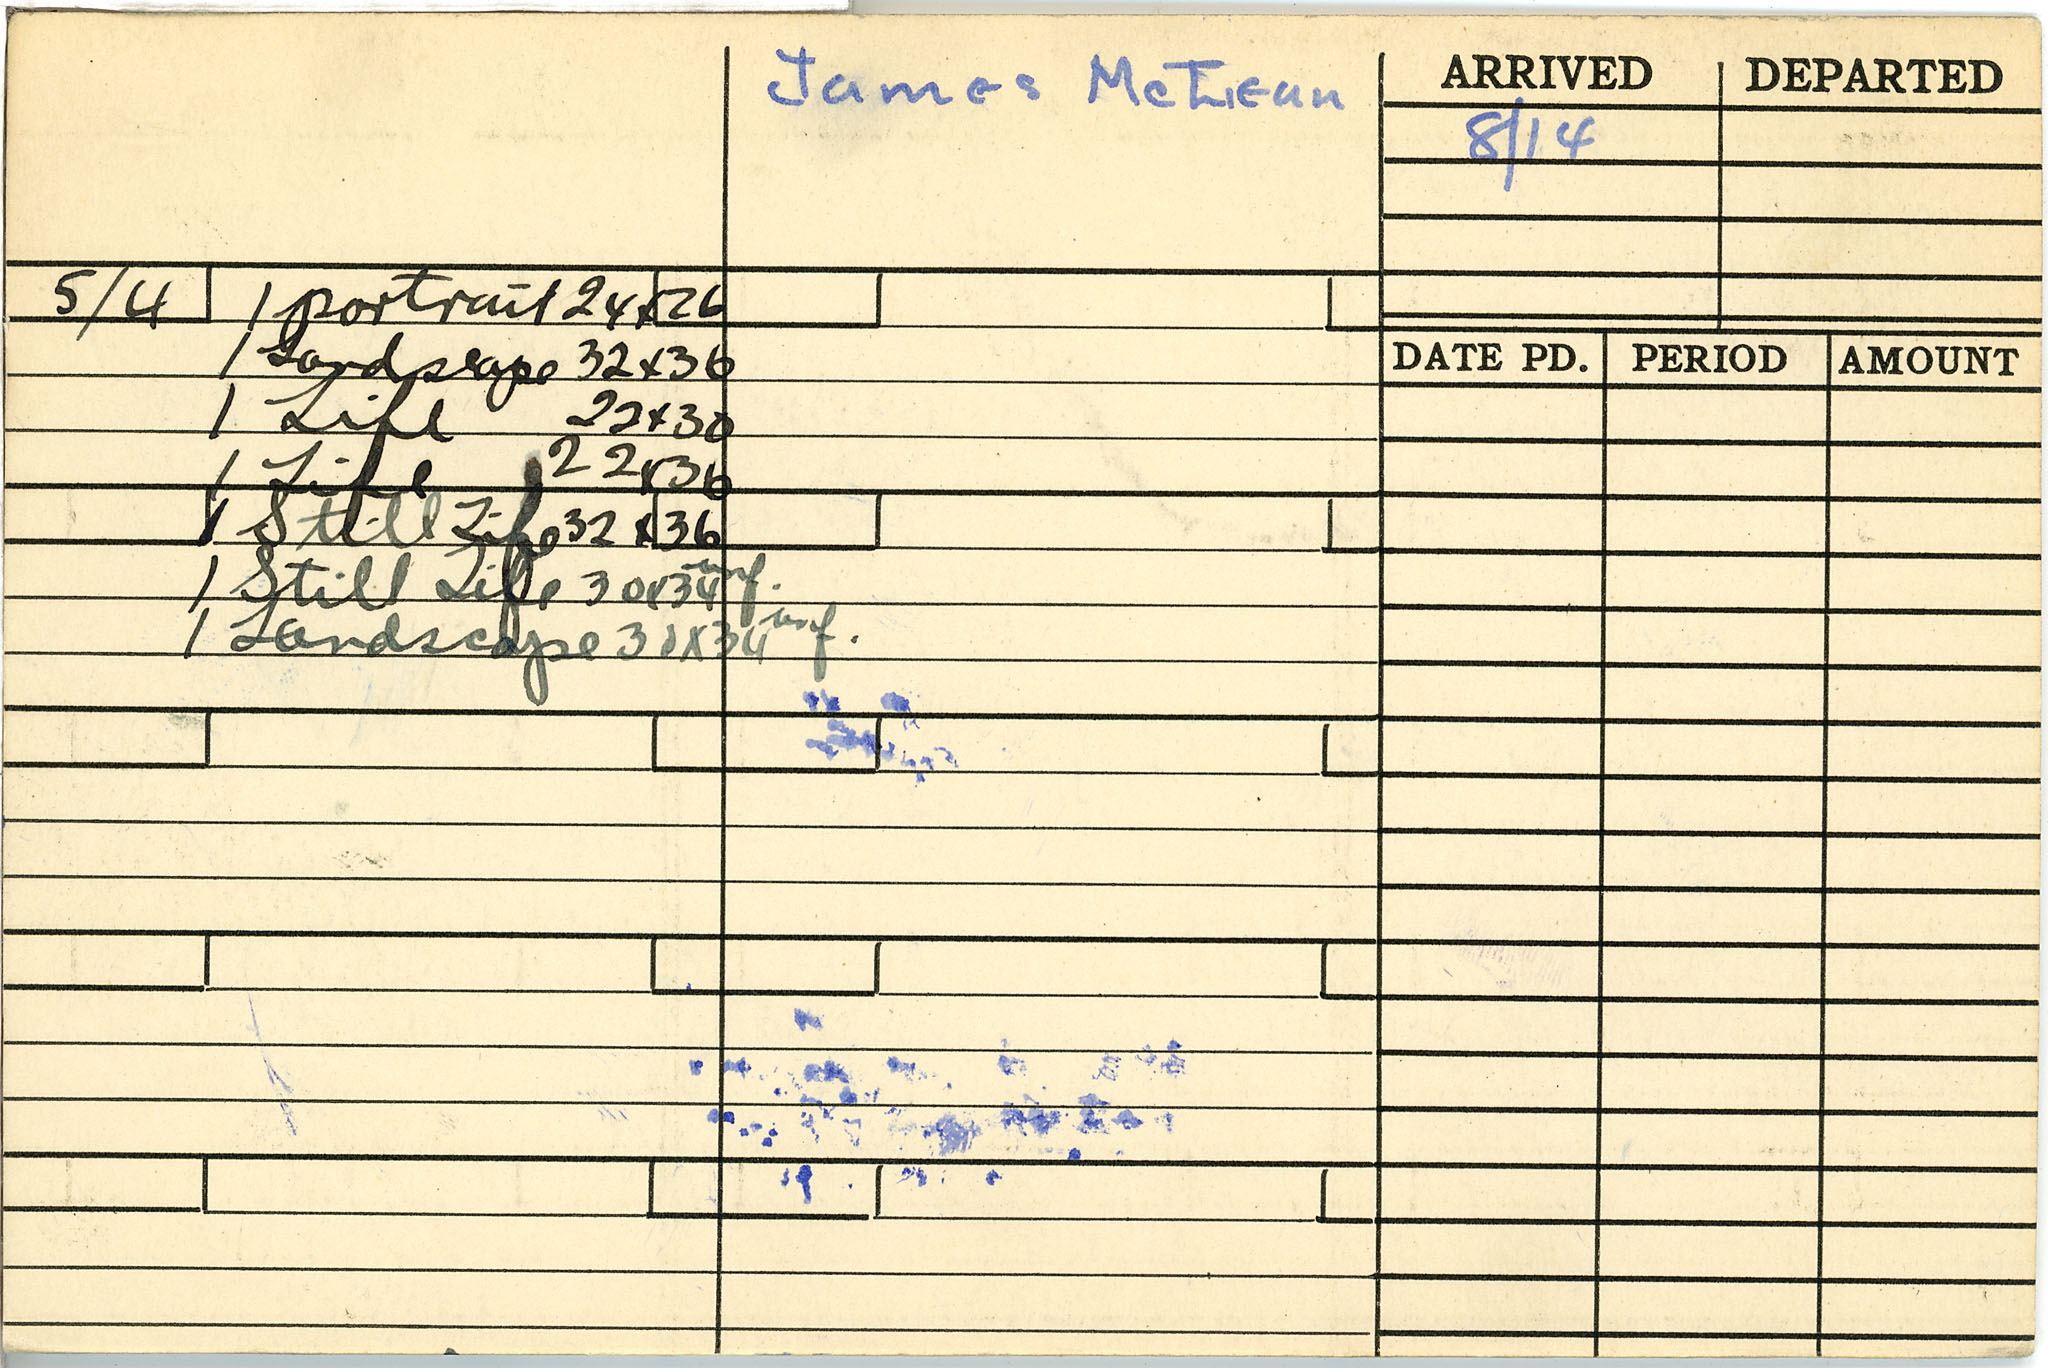 James McLean
ARRIVED DEPARTED
8/14
5/4 1 portrait 24x26
1 Landscape 32x36
1 Life 22x30
1 Life 22x36
1 Still Life 32x36
1 Still Life 30x34 unf.
1 Landscape 30x34 unf.
DATE PD. PERIOD AMOUNT